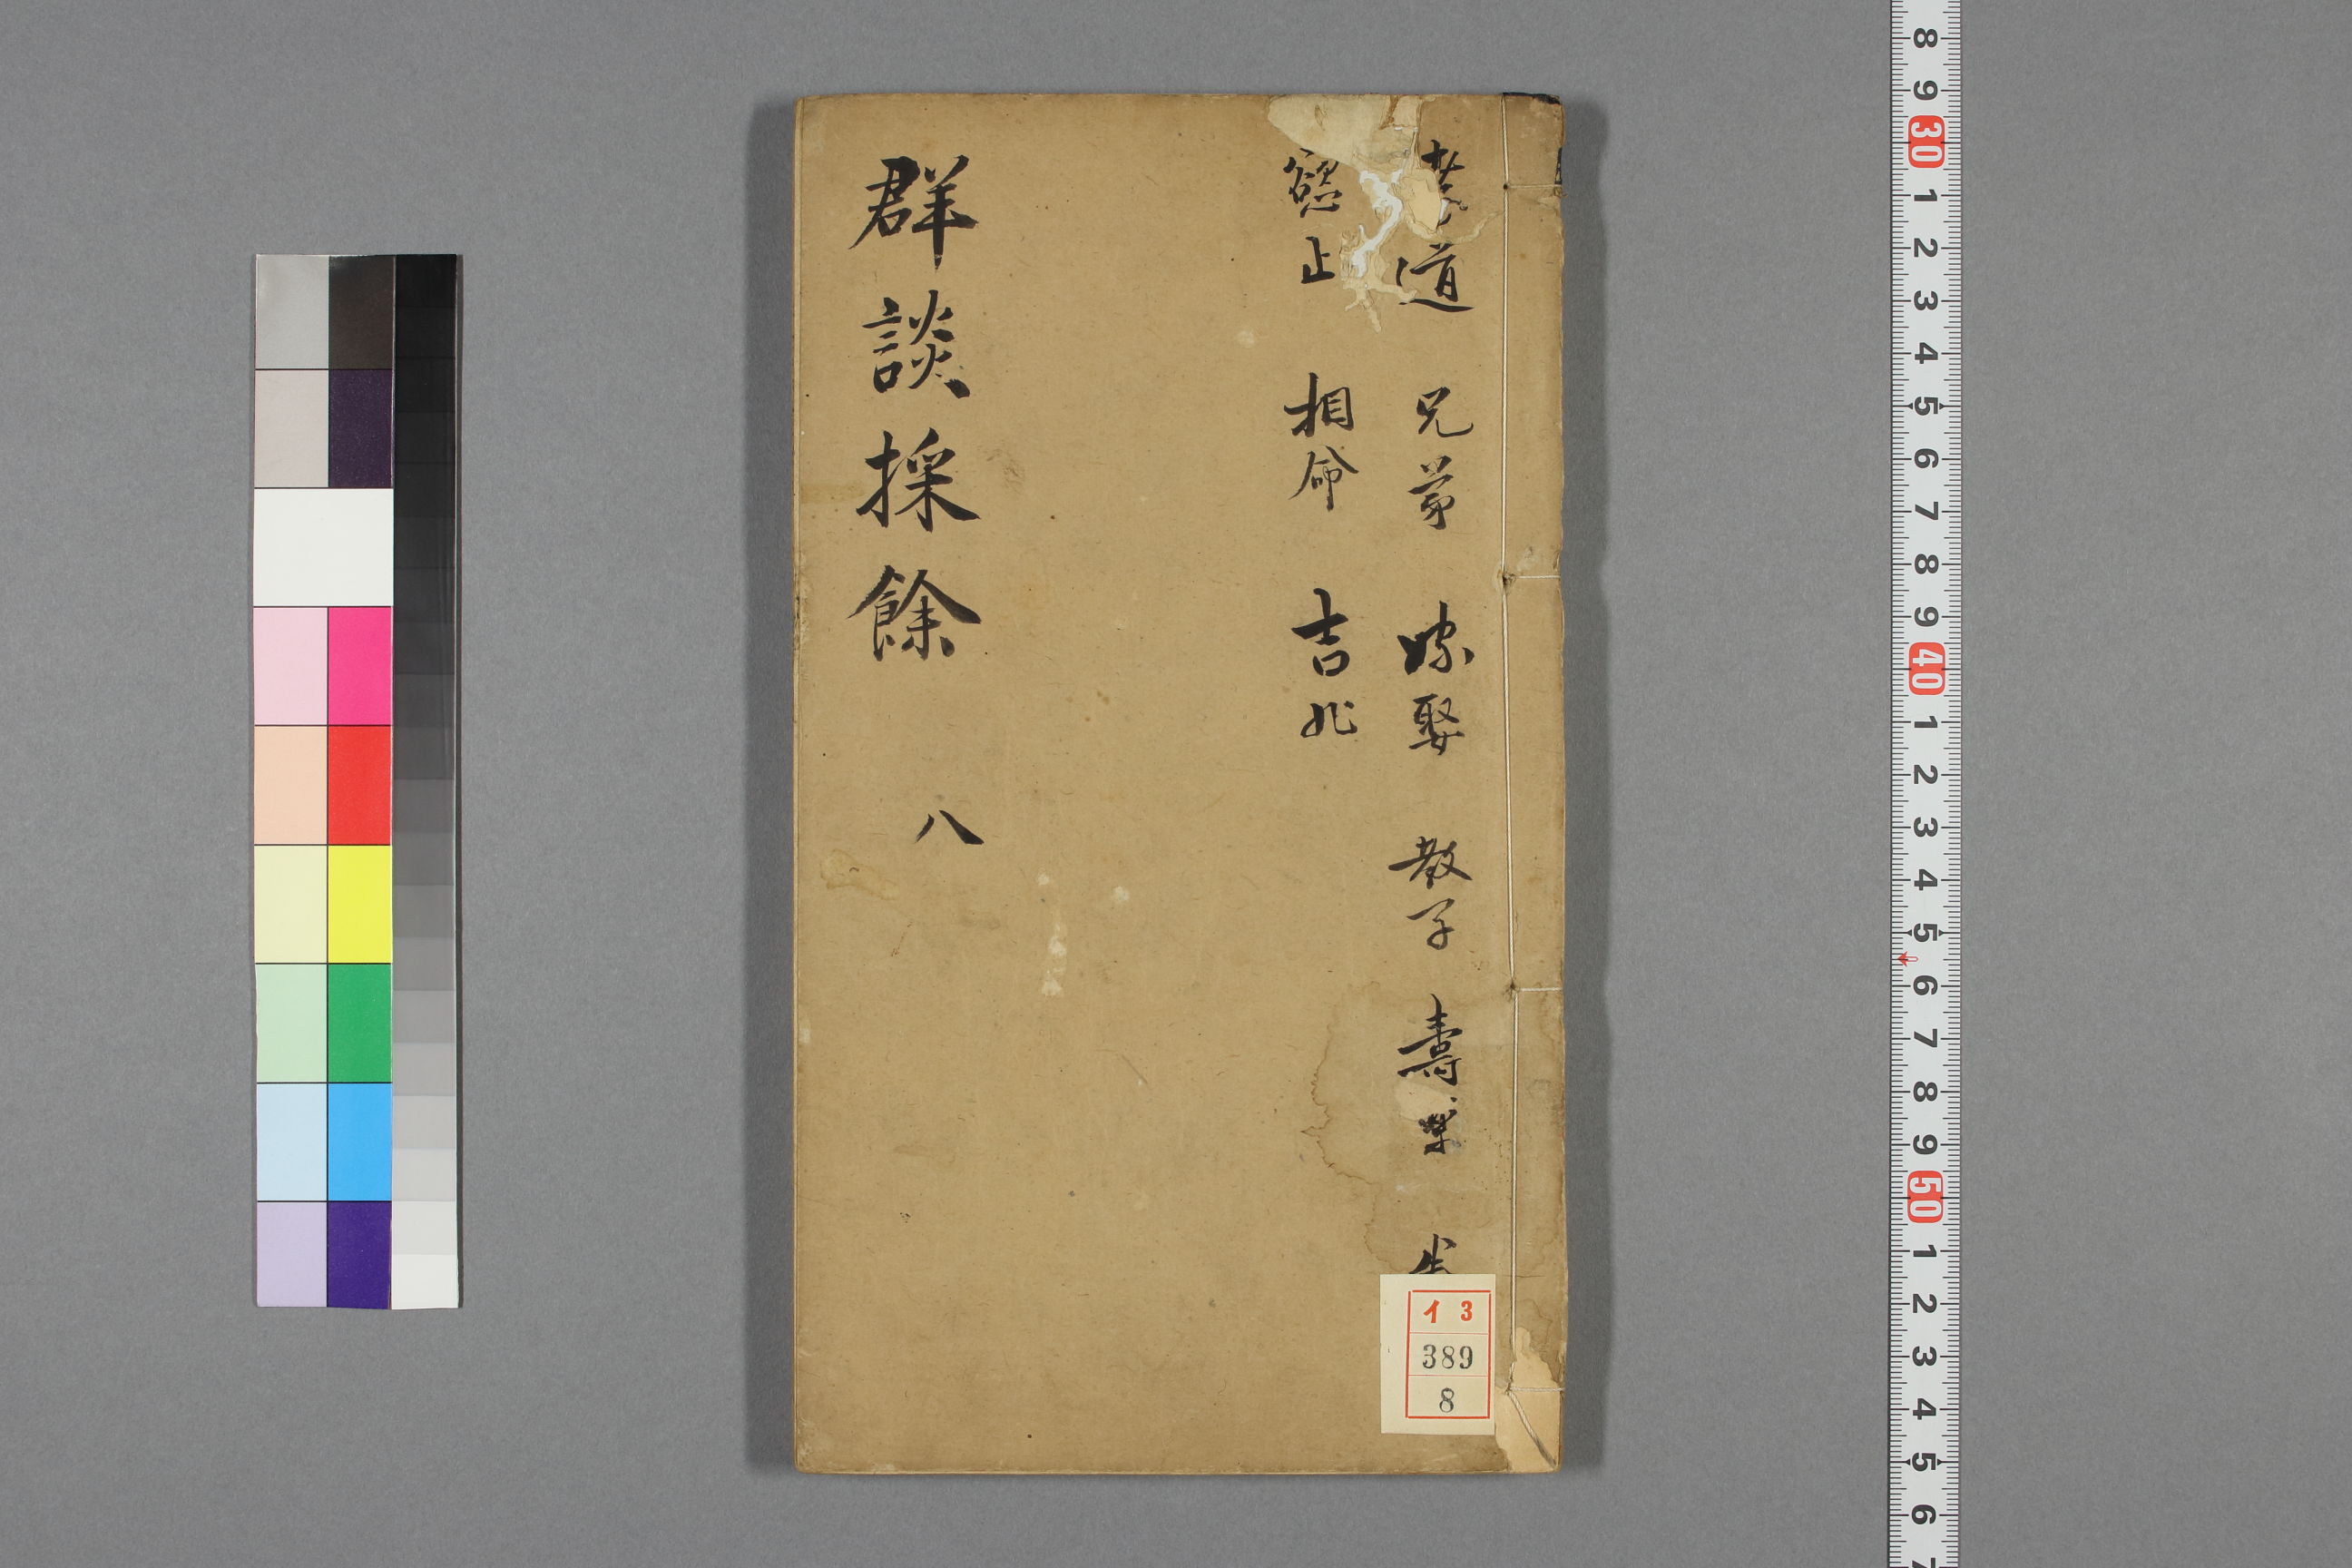 道 兄弟 嫁娶 教子 壽
止 相命 吉兆
群談採餘 八
イ 3
389
8
8 9 30 1 2 3 4 5 6 7 8 9 40 1 2 3 4 5 6 7 8 9 50 1 2 3 4 5 6